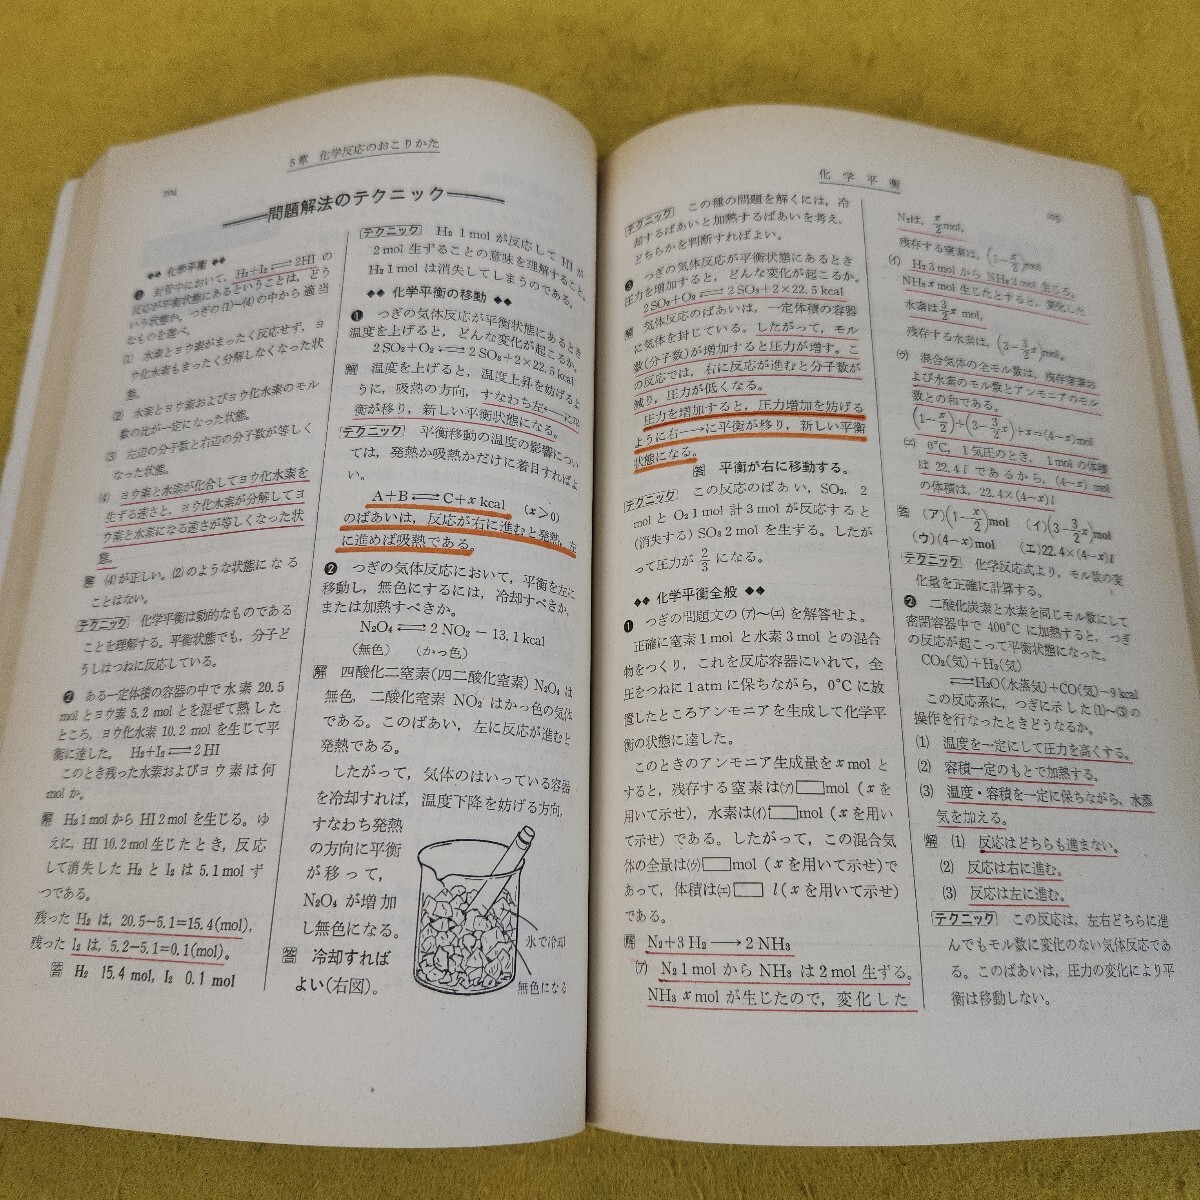 5章 化学反応のおこりかた
問題解法のテクニック
◆◆ 化学平衡 ◆◆
❶ 密管中において, H₂+I₂⇄2HI の
反応が平衡状態にあるということは, どう
いう状態か. つぎの(1)〜(4)の中から適当
なものを選べ.
(1) 水素とヨウ素がまったく反応せず, ヨ
ウ化水素もまったく分解しなくなった状
態.
(2) 水素とヨウ素およびヨウ化水素のモル
数の比が一定になった状態.
(3) 左辺の分子数と右辺の分子数が等しく
なった状態.
(4) ヨウ素と水素が化合してヨウ化水素を
生ずる速さと, ヨウ化水素が分解してヨ
ウ素と水素になる速さが等しくなった状
態.
解 (4)が正しい. (2)のような状態になる
ことはない.
テクニック 化学平衡は動的なものである
ことを理解する. 平衡状態でも, 分子ど
うしはつねに反応している.
❷ ある一定体積の容器の中で水素 20.5
molとヨウ素 5.2 mol とを混ぜて熱した
ところ, ヨウ化水素 10.2 mol を生じて平
衡に達した. H₂+I₂⇄2HI
このとき残った水素およびヨウ素は何
molか.
解 H₂ 1 mol から HI 2 mol を生じる. ゆ
えに, HI 10.2 mol 生じたとき, 反応
して消失した H₂ と I₂ は 5.1 mol ず
つである.
残った H₂ は, 20.5−5.1=15.4(mol),
残った I₂ は, 5.2−5.1=0.1(mol).
答 H₂ 15.4 mol, I₂ 0.1 mol
テクニック H₂ 1 mol が反応して HI が
2 mol 生ずることの意味を理解すること.
H₂ 1 mol は消失してしまうのである.
◆◆ 化学平衡の移動 ◆◆
❶ つぎの気体反応が平衡状態にあるとき
温度を上げると, どんな変化が起こるか.
2SO₂+O₂⇄2SO₃+2×22.5 kcal
解 温度を上げると, 温度上昇を妨げるよ
うに, 吸熱の方向, すなわち左←に平
衡が移り, 新しい平衡状態になる.
テクニック 平衡移動の温度の影響につい
ては, 発熱か吸熱かだけに着目すればよ
い.
A+B⇄C+x kcal (x>0)
のばあいは, 反応が右に進むと発熱, 左
に進めば吸熱である.
❷ つぎの気体反応において, 平衡を左に
移動し, 無色にするには, 冷却すべきか,
または加熱すべきか.
N₂O₄⇄2NO₂−13.1 kcal
(無色) (かっ色)
解 四酸化二窒素(四二酸化窒素) N₂O₄ は
無色, 二酸化窒素 NO₂ はかっ色の気体
である. このばあい, 左に反応が進むと
発熱である.
したがって, 気体のはいっている容器
を冷却すれば, 温度下降を妨げる方向,
すなわち発熱
の方向に平衡
が移って,
N₂O₄ が増加
し無色になる.
答 冷却すれば
よい(右図).
氷で冷却
無色になる
化学平衡
テクニック この種の問題を解くには, 冷
却するばあいと加熱するばあいを考え,
どちらかを判断すればよい.
❸ つぎの気体反応が平衡状態にあるとき
圧力を増加すると, どんな変化が起こるか.
2SO₂+O₂⇄2SO₃+2×22.5 kcal
解 気体反応のばあいは, 一定体積の容器
に気体を封じている. したがって, モル
数(分子数)が増加すると圧力が増す. こ
の反応では, 右に反応が進むと分子数が
減り, 圧力が低くなる.
圧力を増加すると, 圧力増加を妨げる
ように右→に平衡が移り, 新しい平衡
状態になる.
答 平衡が右に移動する.
テクニック この反応のばあい, SO₂ 2
mol と O₂ 1 mol 計 3 mol が反応すると
(消失する) SO₃ 2 mol を生ずる. したが
って圧力が 2/3 になる.
◆◆ 化学平衡全般 ◆◆
❶ つぎの問題文の(ア)〜(エ)を解答せよ.
正確に窒素 1 mol と水素 3 mol との混合
物をつくり, これを反応容器にいれて, 全
圧をつねに 1 atm に保ちながら, 0°C に放
置したところアンモニアを生成して化学平
衡の状態に達した.
このときのアンモニア生成量を x mol と
すると, 残存する窒素は(ア)□mol (x を
用いて示せ), 水素は(イ)□mol (x を用い
て示せ) である. したがって, この混合気
体の全量は(ウ)□mol (x を用いて示せ)で
あって, 体積は(エ)□ l (x を用いて示せ)
である.
解 N₂+3H₂→2NH₃
(ア) N₂ 1 mol から NH₃ は 2 mol 生ずる.
NH₃ x mol が生じたので, 変化した
N₂は, x/2 mol,
残存する窒素は, (1−x/2)mol
(イ) H₂ 3 mol から NH₃ 2 mol 生じる.
NH₃ x mol 生じたとすると, 変化した
水素は 3/2 x mol,
残存する水素は, (3−3/2 x)mol,
(ウ) 混合気体の全モル数は, 残存窒素お
よび水素のモル数とアンモニアのモル
数との和である.
(1−x/2)+(3−3/2 x)+x=(4−x)mol
(エ) 0°C, 1気圧のとき, 1 mol の体積
は 22.4 l であるから, (4−x) mol
の体積は, 22.4×(4−x) l
答 (ア)(1−x/2)mol (イ)(3−3/2 x)mol
(ウ)(4−x)mol (エ)22.4×(4−x) l
テクニック 化学反応式より, モル数の変
化量を正確に計算する.
❷ 二酸化炭素と水素を同じモル数にして
密閉容器中で 400°C に加熱すると, つぎ
の反応が起こって平衡状態になった.
CO₂(気)+H₂(気)
⇄H₂O(水蒸気)+CO(気)−9 kcal
この反応系に, つぎに示した(1)〜(3)の
操作を行なったときどうなるか.
(1) 温度を一定にして圧力を高くする.
(2) 容積一定のもとで加熱する.
(3) 温度・容積を一定に保ちながら, 水蒸
気を加える.
解 (1) 反応はどちらも進まない.
(2) 反応は右に進む.
(3) 反応は左に進む.
テクニック この反応は, 左右どちらに進
んでもモル数に変化のない気体反応であ
る. このばあいは, 圧力の変化により平
衡は移動しない.